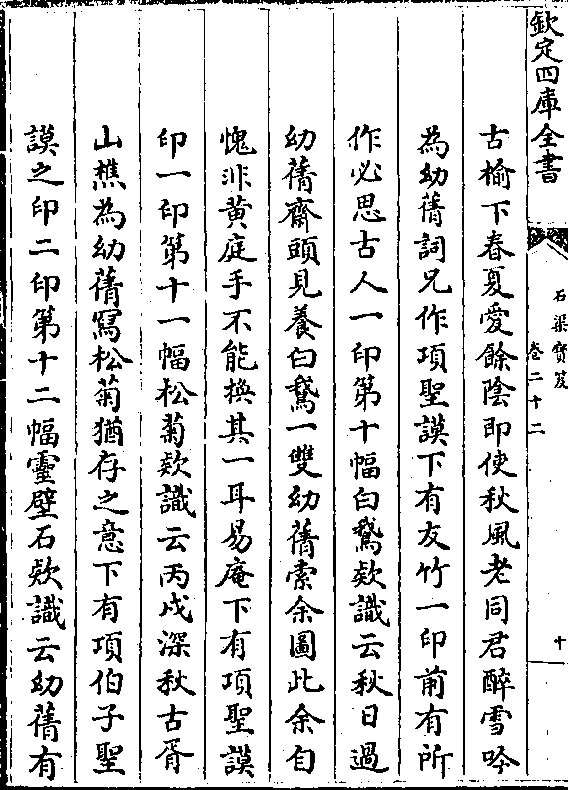 欽定四庫全書
石渠寳笈
卷二十二
十
古榆下春夏愛餘陰即使秋風老同君醉雪吟
為幼蒨詞兄作項聖謨下有友竹一印前有所
作必思古人一印第十幅白鵞欵識云秋日過
幼蒨齋頭見養白鵞一雙幼蒨索余圖此余自
愧非黄庭手不能換其一耳易庵下有項聖謨
印一印第十一幅松菊欵識云丙戌深秋古胥
山樵為幼蒨冩松菊猶存之意下有項伯子聖
謨之印二印第十二幅靈壁石欵識云幼蒨有